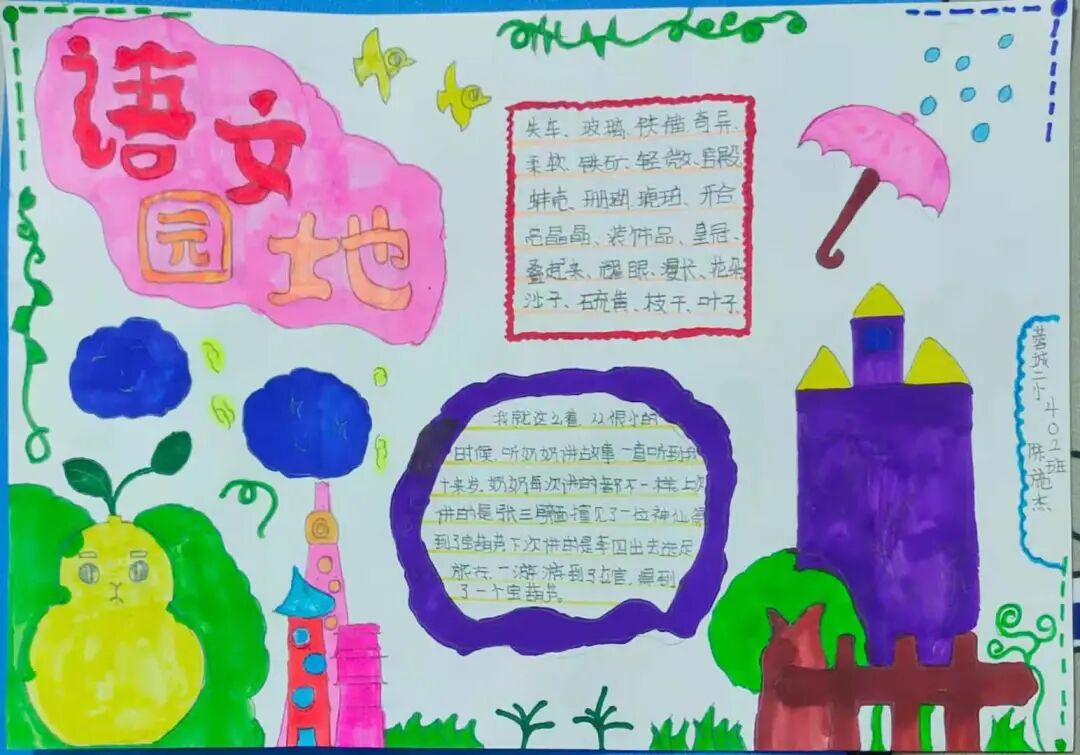 语文
园地
失车、玻璃、铁锚、奇异、
柔软、铁矿、轻微、宫殿、
蚌壳、珊瑚、琥珀、开合
亮晶晶、装饰品、皇冠、
叠起来、耀眼、漫长、花朵
沙子、硫黄、枝干、叶子、
我就这么着,从很小的
时候,听奶奶讲故事一直听到我
十来岁。奶奶每次讲的都不一样上次
讲的是张三劈面撞见了一位神仙得
到了宝葫芦下次讲的是李四出去远足
旅行,一游游到了龙宫,得到
了一个宝葫芦。
蓉城二小
402班
陈施杰